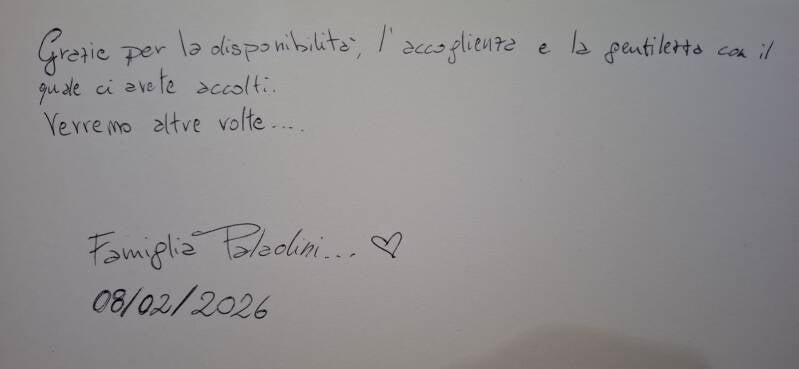 Grazie per la disponibilità, l'accoglienza e la gentilezza con il
quale ci avete accolti.
Verremo altre volte....
Famiglia Paladini... ♡
08/02/2026